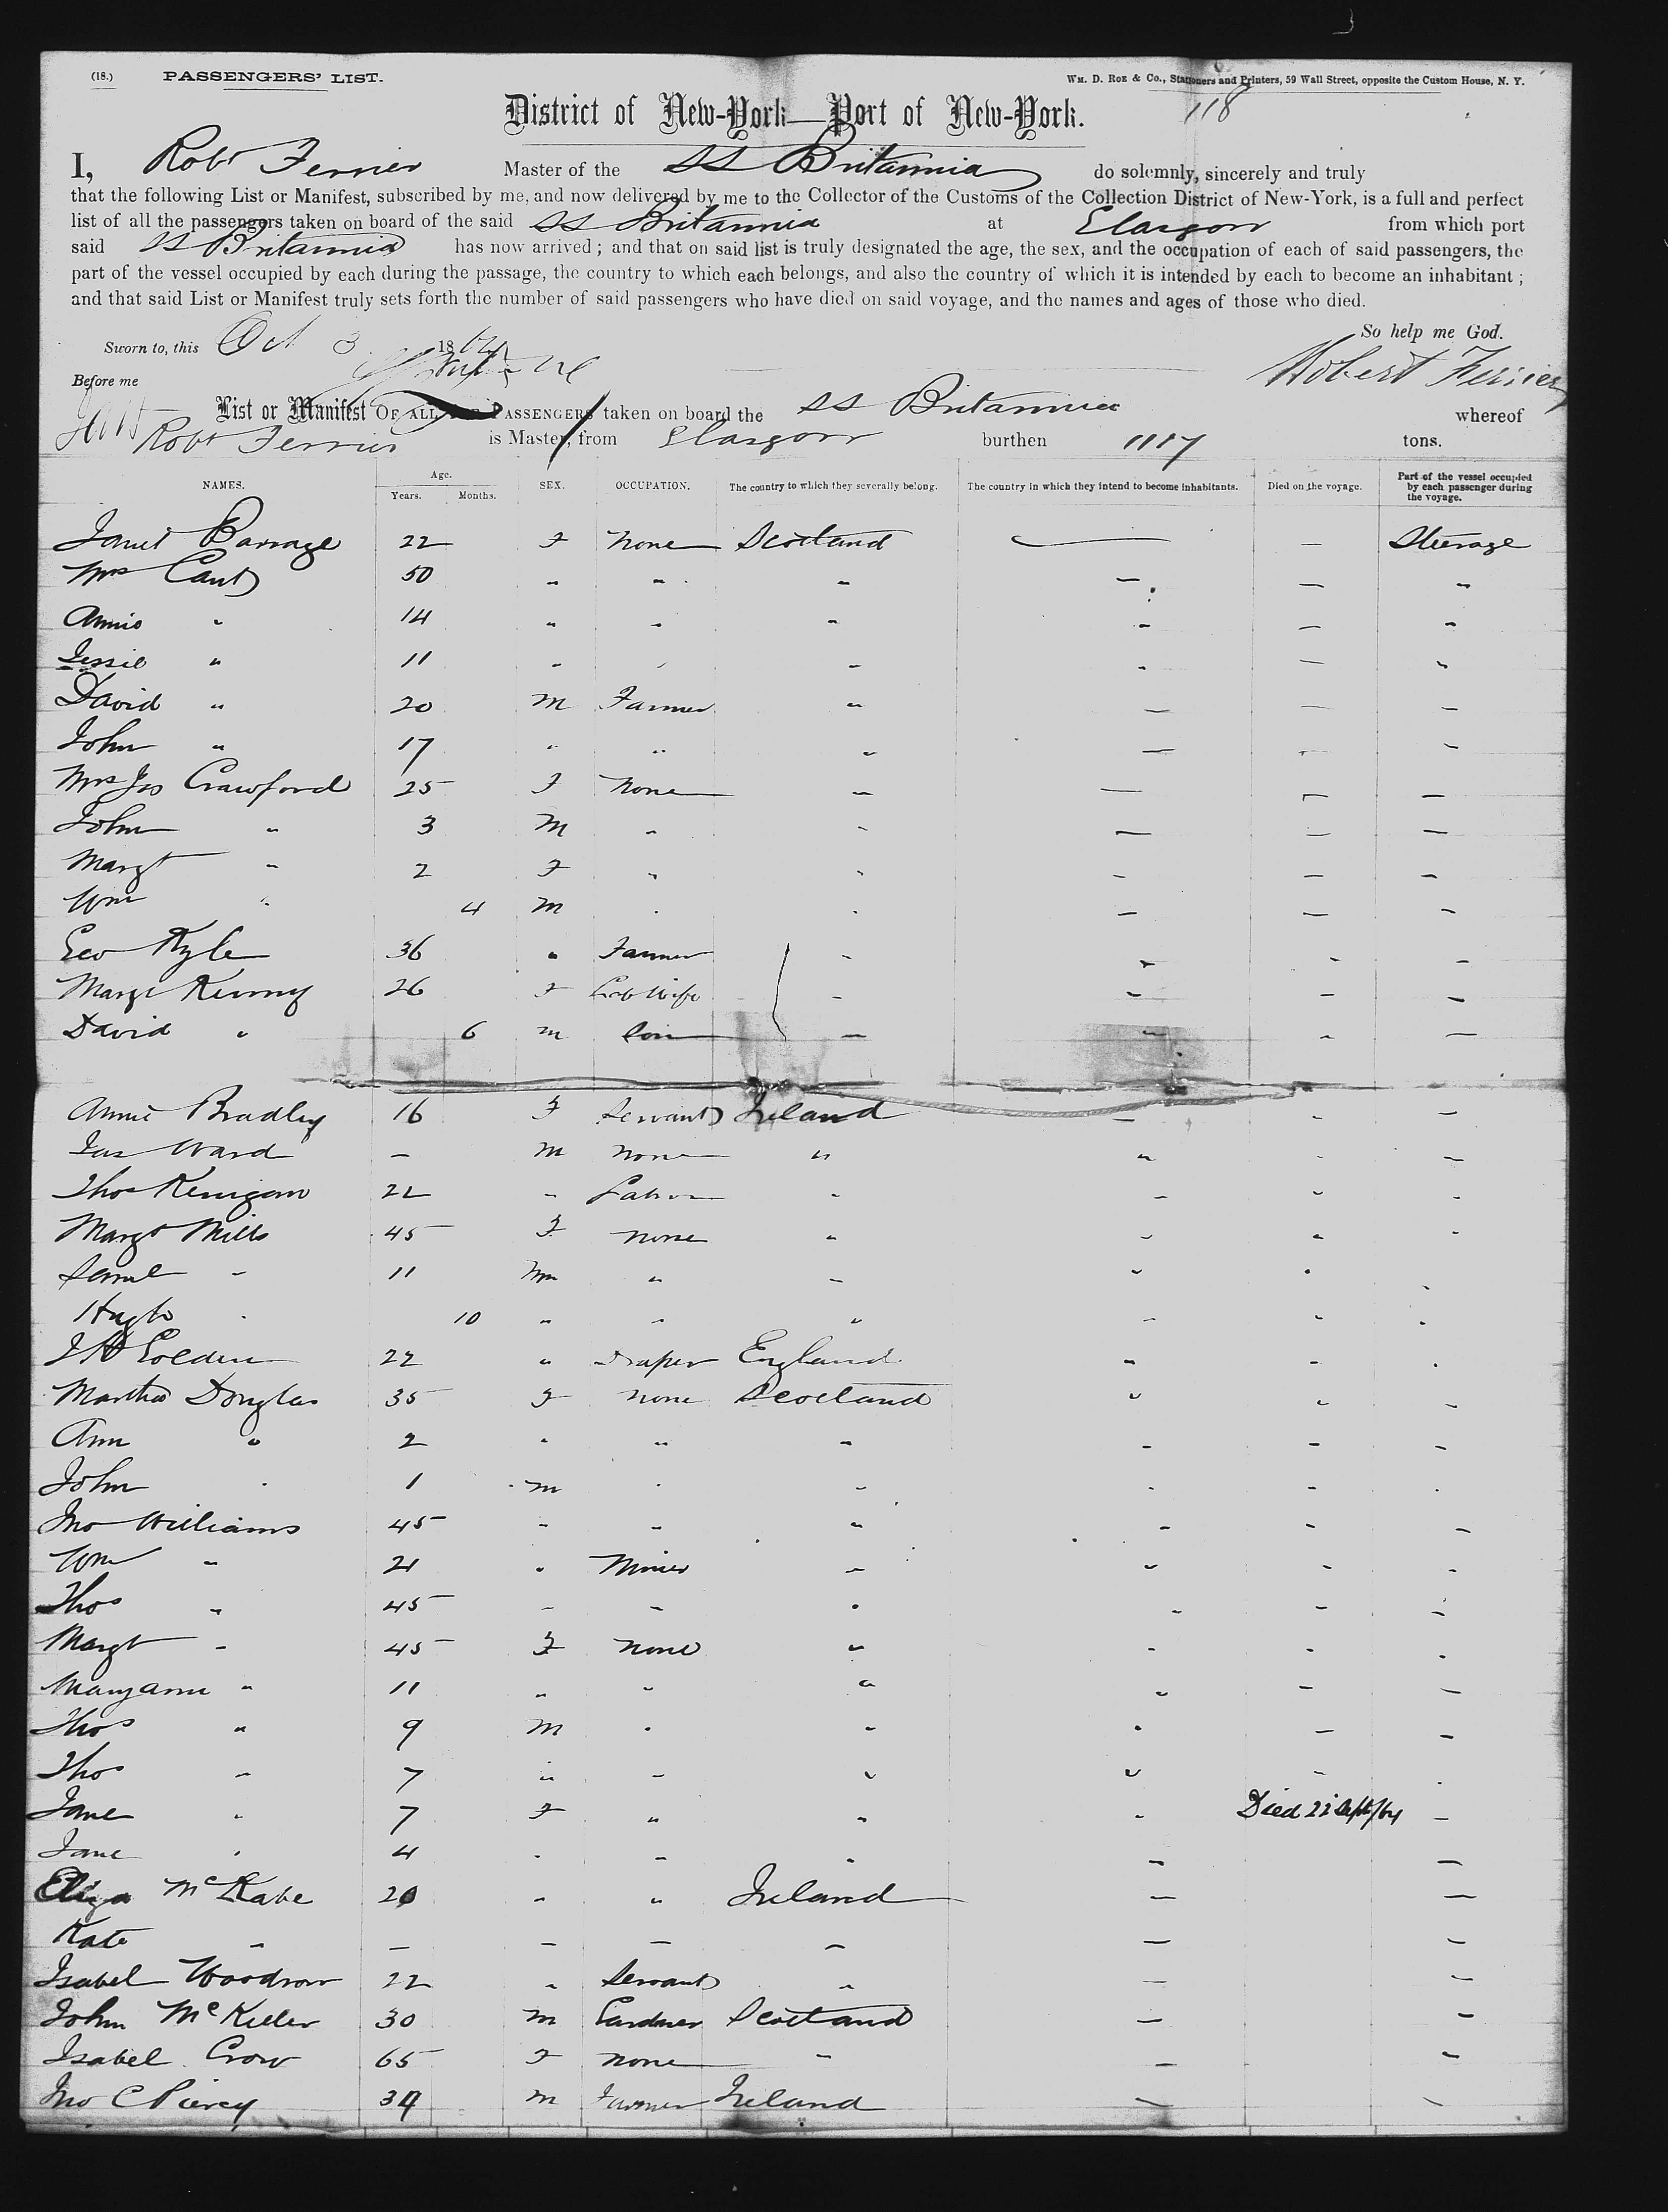 (18.) PASSENGERS' LIST. Wm. D. Roe & Co., Stationers and Printers, 59 Wall Street, opposite the Custom House, N. Y.
District of New-York—Port of New-York. 118
I, Robt Ferrier Master of the SS Britannia do solemnly, sincerely and truly
that the following List or Manifest, subscribed by me, and now delivered by me to the Collector of the Customs of the Collection District of New-York, is a full and perfect
list of all the passengers taken on board of the said SS Britannia at Glasgow from which port
said SS Britannia has now arrived; and that on said list is truly designated the age, the sex, and the occupation of each of said passengers, the
part of the vessel occupied by each during the passage, the country to which each belongs, and also the country of which it is intended by each to become an inhabitant;
and that said List or Manifest truly sets forth the number of said passengers who have died on said voyage, and the names and ages of those who died.
So help me God.
Sworn to, this Oct 3 1864
Before me Robert Ferrier
List or Manifest OF ALL THE PASSENGERS taken on board the SS Britannia whereof
Robt Ferrier is Master, from Glasgow burthen 1117 tons.
NAMES. Age. Years. Months. SEX. OCCUPATION. The country to which they severally belong. The country in which they intend to become inhabitants. Died on the voyage. Part of the vessel occupied by each passenger during the voyage.
Janet 22 F None Scotland — — Steerage
Mrs Cant 50 " " " — — "
Annie " 14 " " " " — "
Jessie " 11 " " " " — "
David " 20 M Farmer " — — —
John " 17 " " " — — "
Mrs Jas Crawford 25 F None " — — —
John " 3 M " " — — —
Margt " 2 F " " — — —
Wm " 4 M " " — — —
Geo Kyle 36 " Farmer " — — —
Margt 26 F Wife " — — —
David " 6 M Son — — " —
Annie Bradley 16 F Servant Ireland — — —
Jas Ward — M None " " — —
Thos Kerrigan 22 " Labor " — " "
Margt Mills 45 F None " " " "
Saml " 11 M " " " " "
Hugh " 10 " " " " " "
J H Golden 22 " Draper England " " "
Martha Douglas 35 F None Scotland " " "
Ann " 2 " " " " " "
John " 1 M " " " " "
Jno Williams 45 " " " " " "
Wm " 21 " Miner " " " "
Thos " 45 " " " " " "
Margt " 45 F None " " " "
Maryann " 11 " " " " " "
Thos " 9 M " " " " "
Thos " 7 " " " " " "
Jane " 7 F " " " Died 22 Sept/64 —
Jane " 4 " " " — —
Eliza McKabe 20 " " Ireland — —
Kate " — — — — — —
Isabel Woodrow 22 " Servant " — "
John McKeller 30 M Gardner Scotland — "
Isabel Crow 65 F None " — "
Jno C Piercy 34 M Farmer Ireland — "